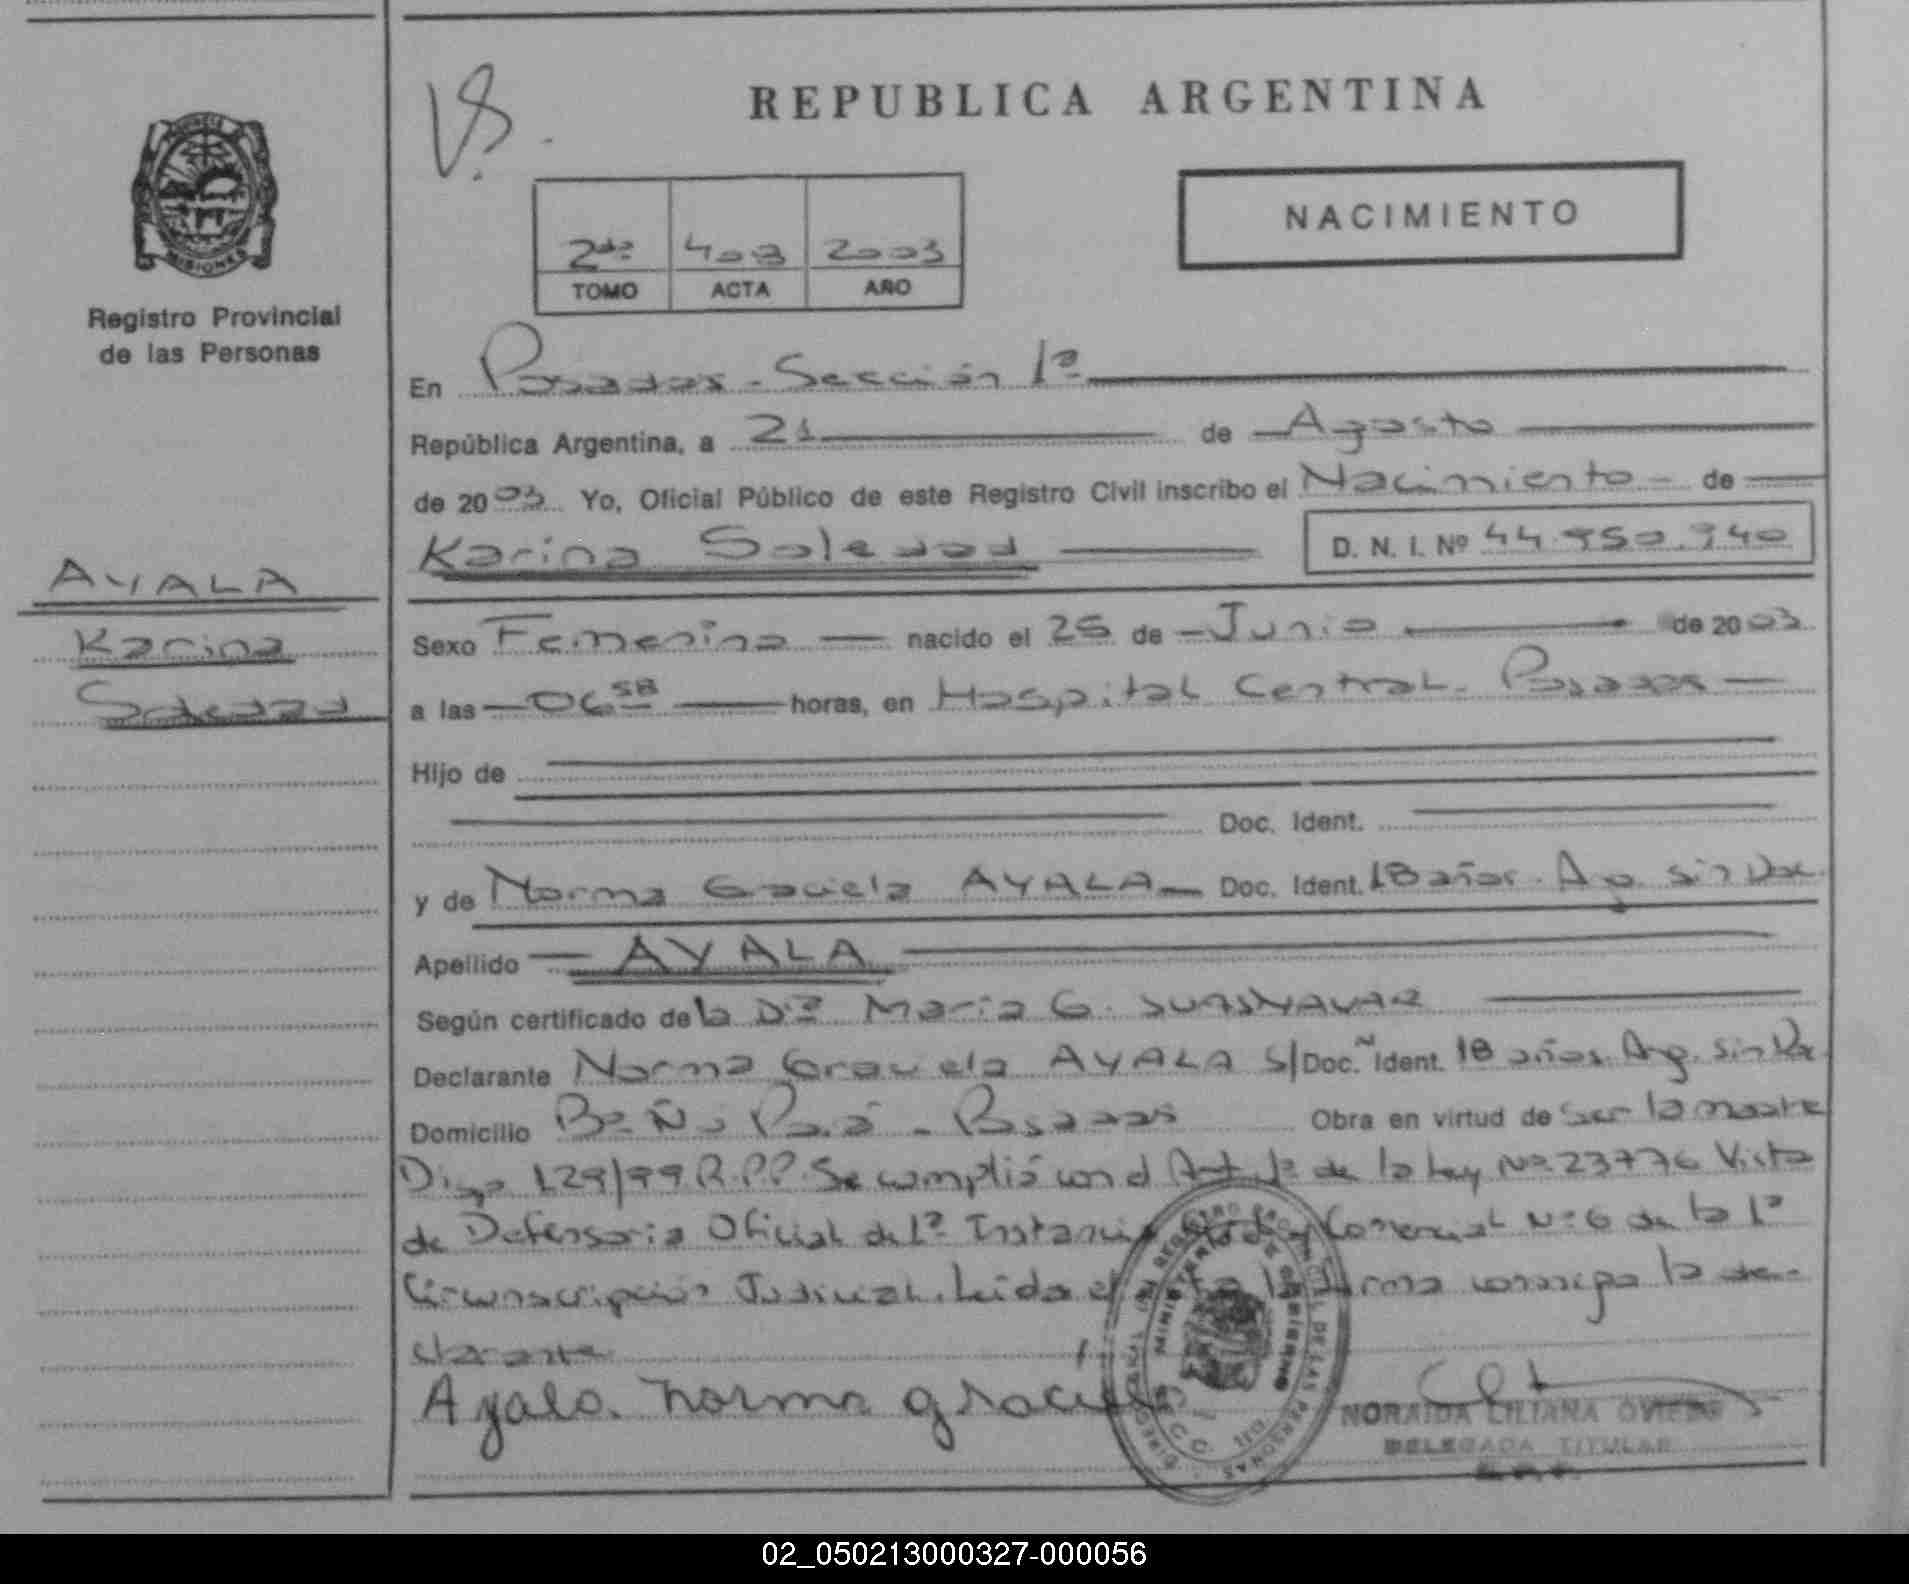 REPUBLICA ARGENTINA
NACIMIENTO
2do 403 2003
TOMO ACTA AÑO
MISIONES
Registro Provincial
de las Personas
AYALA
Karina
Soledad
En Posadas - Sección 1ª
República Argentina, a 21 de Agosto
de 2003 Yo, Oficial Público de este Registro Civil inscribo el Nacimiento de
Karina Soledad D. N. I. Nº 44.950.940
Sexo Femenino nacido el 25 de Junio de 2003
a las 06 58 horas, en Hospital Central - Posadas
Hijo de
Doc. Ident.
y de Norma Graciela AYALA Doc. Ident. 18 años. Arg. sin Doc.
Apellido AYALA
Según certificado de la Dra María G.
Declarante Norma Graciela AYALA S/ Doc. Ident. 18 años Arg. sin Doc.
Domicilio Bº Posadas Obra en virtud de ser la madre
Disp. 129/99 R.P.P. Se cumplió con el Art. 1º de la Ley Nº 23776 Vista
de Defensoria Oficial de 1ª Instancia Civil y Comercial Nº 6 de la 1ª
Circunscripción Judicial. Leida el acta la firma conmigo la de-
clarante
Ayala norma graciela
MINISTERIO DE GOBIERNO
NORAIDA LILIANA OVIEDO
DELEGADA TITULAR
02_050213000327-000056